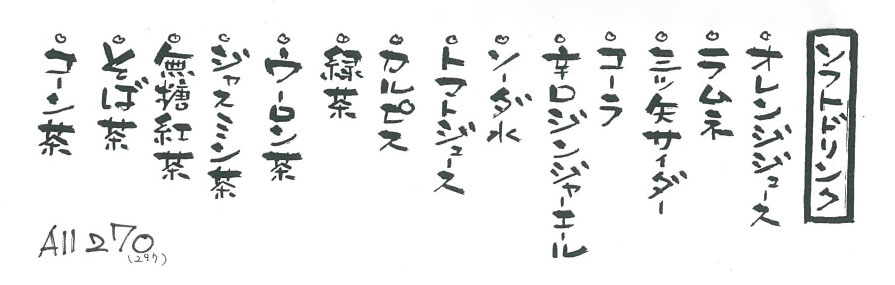 ソフトドリンク
○オレンジジュース
○ラムネ
○三ツ矢サイダー
○コーラ
○辛口ジンジャーエール
○ソーダ水
○トマトジュース
○カルピス
○緑茶
○ウーロン茶
○ジャスミン茶
○無糖紅茶
○そば茶
○コーン茶
All 270
(297)